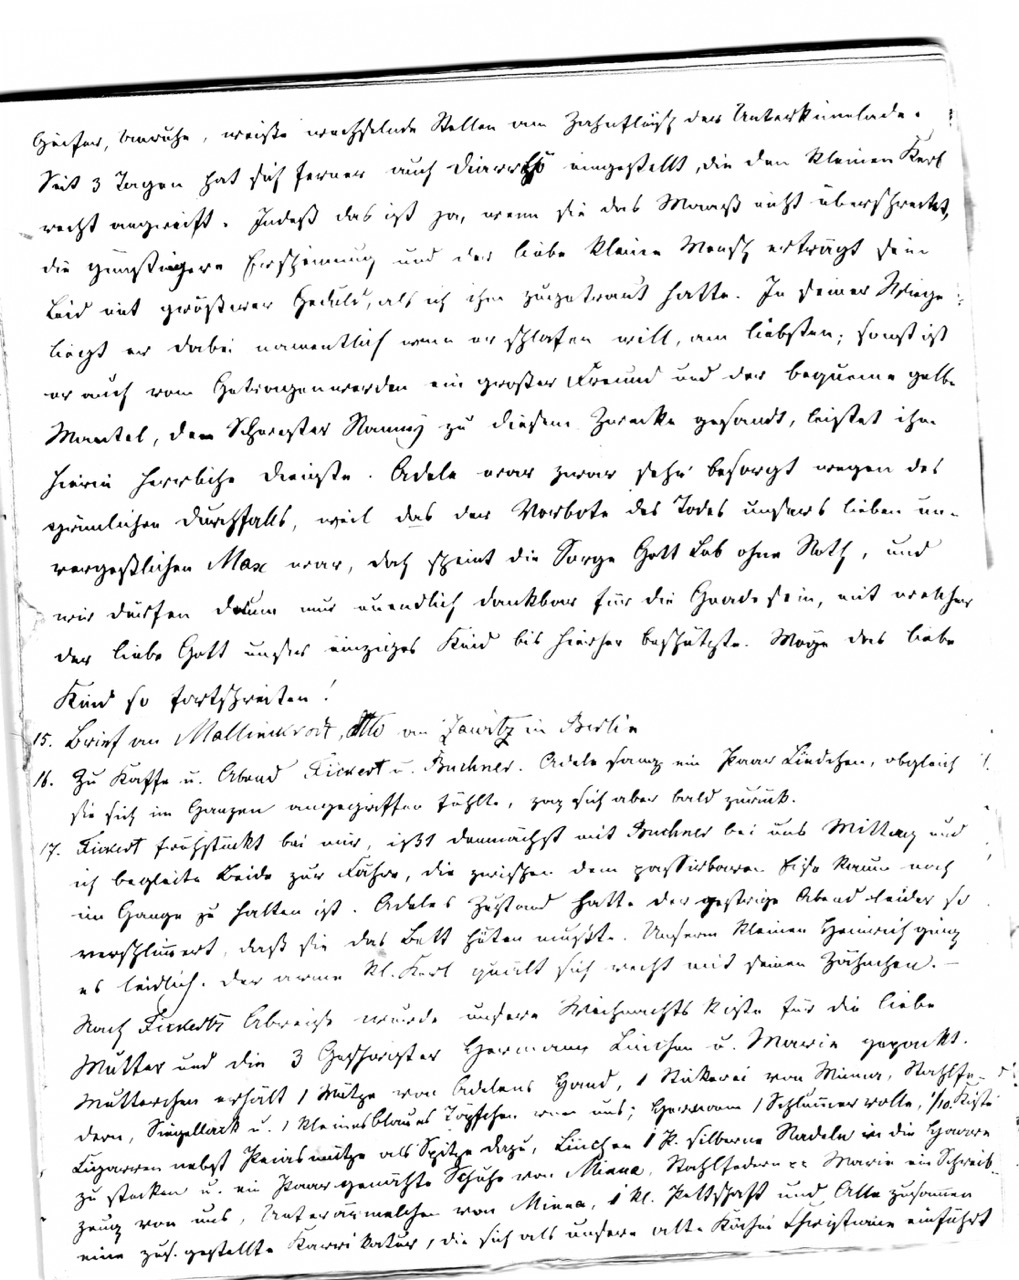 Geifer, Unruhe, weiße wechselnde Stellen am Zahnfleisch der Unterkinnlade.
Seit 3 Tagen hat sich ferner auch Diarrhö eingestellt, die den kleinen Kerl
recht angreift. Indeß das ist ja, wenn sie das Maaß nicht überschreitet,
die günstigere Erscheinung und der liebe kleine Mensch erträgt sein
Leid mit größerer Geduld, als ich ihm zugetraut hatte. In seiner Wiege
liegt er dabei namentlich wenn er schlafen will, am liebsten; sonst ist
er auch vom Getragenwerden ein großer Freund und der bequeme gelbe
Mantel, den Schwester Nanny zu diesem Zwecke gesandt, leistet ihm
hierin herrliche Dienste. Adele war zwar sehr besorgt wegen des
grünlichen Durchfalls, weil das der Vorbote des Todes unsers lieben un-
vergeßlichen Max war, doch scheint die Sorge Gott Lob ohne Noth, und
wir dürfen drum nur unendlich dankbar für die Gnade sein, mit welcher
der liebe Gott unser einziges Kind bis hierher beschützte. Möge das liebe
Kind so fortschreiten!
15. Brief an Mallinckrodt, an in Berlin
16. Zu Kaffe u. Abend Fickert u. Buchner. Adele sang ein Paar Liedchen, obgleich
sie sich im Ganzen angegriffen fühlte, zog sich aber bald zurück.
17. Fickert frühstückt bei mir, ißt demnächst mit Buchner bei uns Mittag und
ich begleite Beide zur Fähre, die zwischen dem passirbaren Eise kaum noch
im Gange zu halten ist. Adeles Zustand hatte der gestrige Abend leider so
verschlimmert, daß sie das Bett hüten mußte. Unserm kleinen Heinrich ging
es leidlich. Der arme kl. Kerl quält sich recht mit seinen Zähnchen. –
Nach Fickerts Abreise wurde unsere Weihnachtskiste für die liebe
Mutter und die 3 Geschwister Hermann, Linchen u. Marie gepackt.
Mutterchen erhält 1 Mütze von Adelens Hand, 1 Stickerei von Minna, Stahlfe-
dern, Siegellack u. 1 kleines blaues Töpfchen von uns; Hermann 1 Schlummerrolle, 1/10 Kiste
Cigarren nebst als Spitze dazu, Linchen 1 P. silberne Nadeln in die Haare
zu stecken u. ein Paar genähte Schuhe von Minna, Stahlfedern Marie ein Schreib-
zeug von uns, Unterärmelchen von Minna, 1 kl. Pettschaft und Alle zusammen
eine zus. gestellte Karrikatur, die sich als unsere alte Köchin Christiane einführt